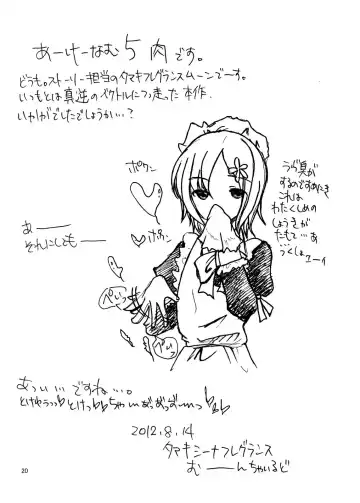 あーけーなむ5 肉です。
どうも。ストーリー担当のタマキフレグランスムーンでーす。
いつもとは真逆のベクトルにつっ走った本作.
いかがでしたでしょうか…?
ポワン
ポワン
あ———
それにしても——
ラヴ臭が
するのですのにき
これは
わたくしめの
しょうきが
たもて…あ
うくしょ
ぺいっ
ぺいっ
あっいいですね…。
2012.8.14
タマキミーナフレグランス
むーーんちゃいるど
20